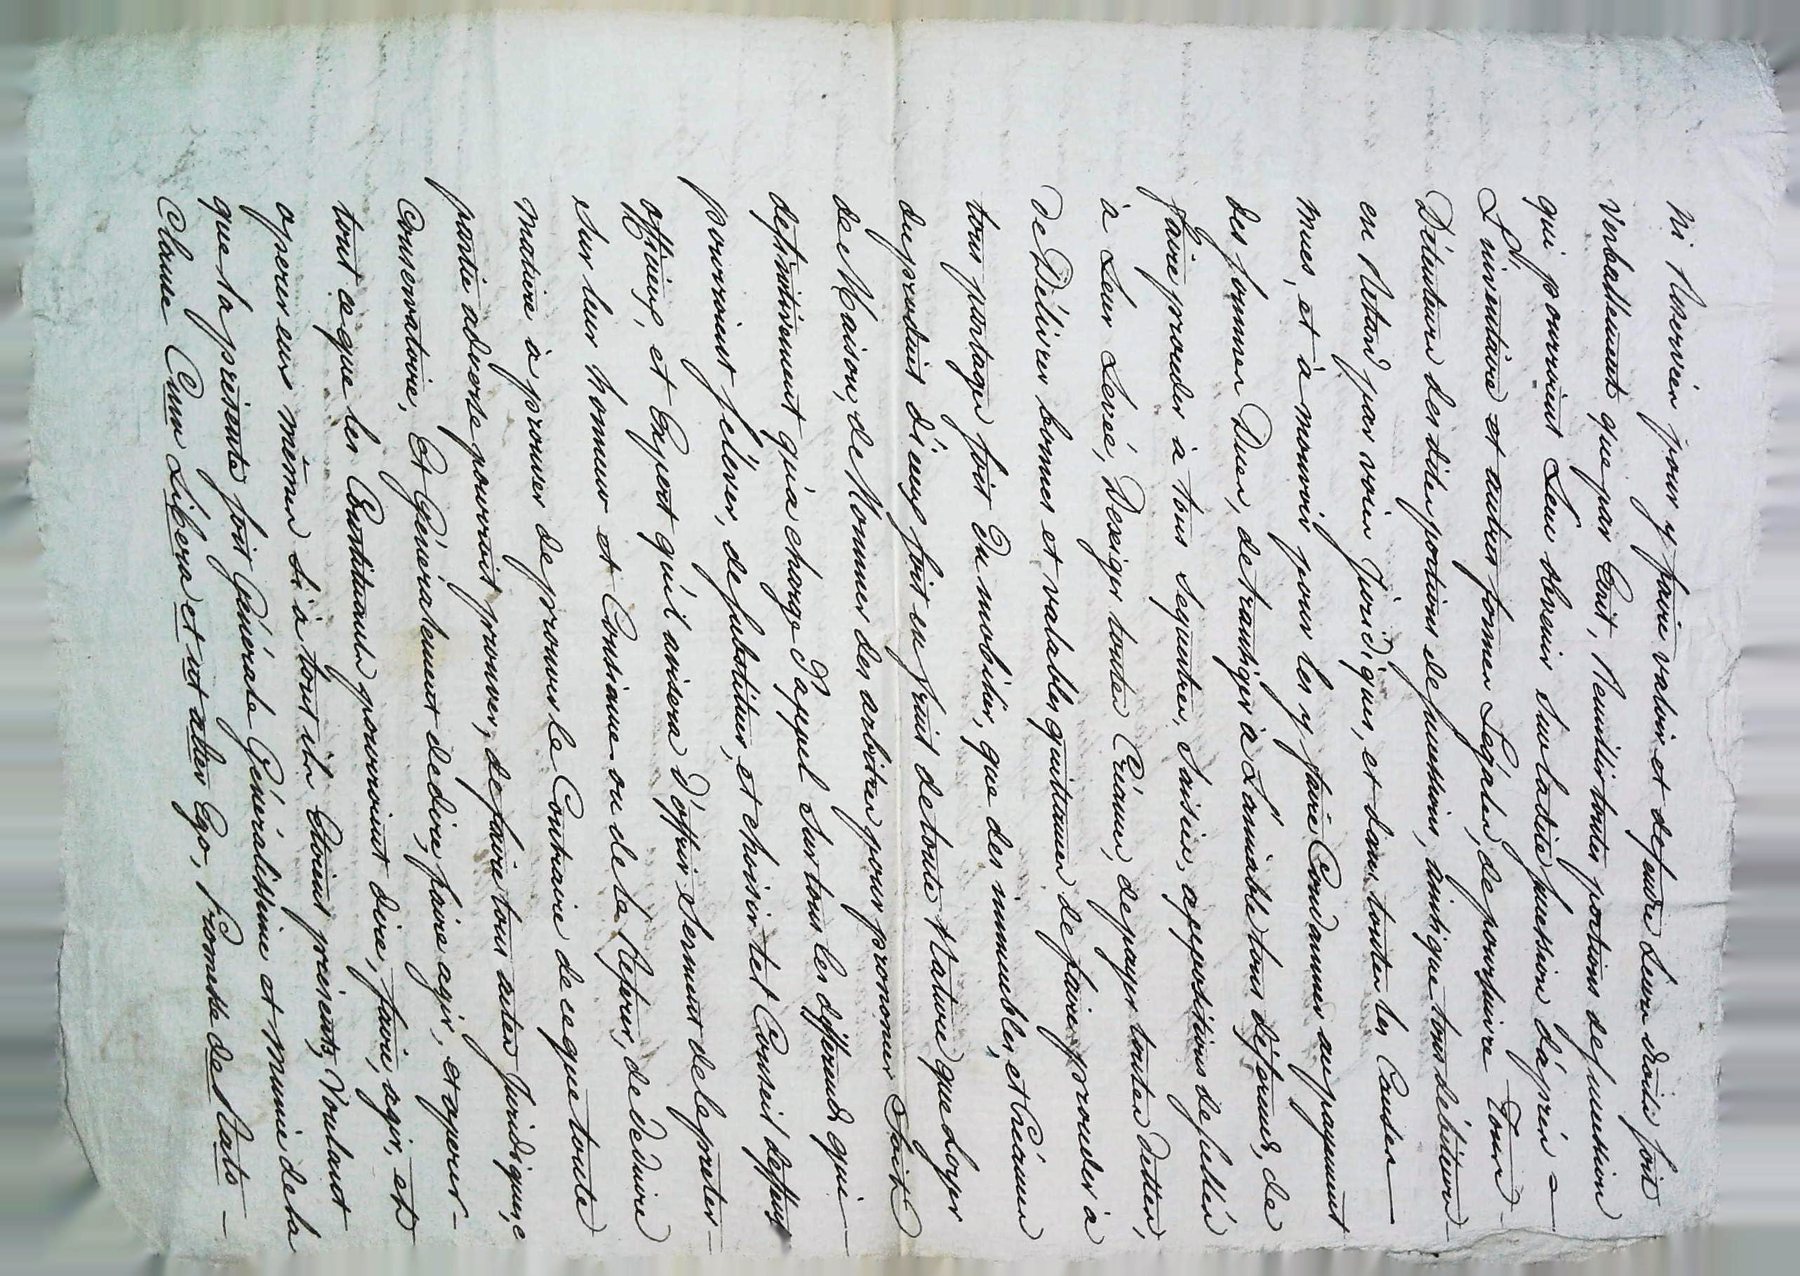 ni Reserver pour y faire valoir et defendre Leurs droits soit
Verballement, que par Ecrit, Recueillir toutes portions de succession
qui pourroient Leur obvenir sur la dite succession d'après
L'inventaire et autres formes Légales, de poursuivre Tous
Détenteurs des dites portions de successions, ainsi que tous débiteurs
en Retard par voies Juridiques, et dans toutes les Causes
mues, et à mouvoir pour les y faire Condamner au payement
des sommes Dues, de transiger à L'amiable tous différends, de
faire proceder à tous sequestres, saisies, appositions de scellés
à Leur Levée, D'exiger toutes Créances, de payer toutes Dettes,
de Délivrer bonnes et valables quittances de faire proceder à
tous partages soit du mobilier, que des immeubles, et Créances
du produit d'iceux soit en fruit de toute Nature que Loyer
de Maison, de Nommer des arbitres pour prononcer Soit
definitivement qu'à charge D'appel sur tous les différends qui
pourroient s'élever, de substituer, et choisir tel Conseil
officieux, et Expert qu'il avisera d'offrir serment de le preter
sur leur honneur et Conscience ou de le Referer, de déduire
matiere à prouver de prouver le Contraire de ce que toute
partie adverse pourroit prouver, de faire tous actes Juridiques,
Conservatoire, Et Généralement de dire, faire agir, et operer
tout ce que les Constituants pourroient dire, faire, agir, et
operer eux mêmes si à tout ils Etoient présents, Voulant
que la présente soit Générale Généralissime et munie de la
Clause Cum Libera et ut alter Ego, Promesse de Rato